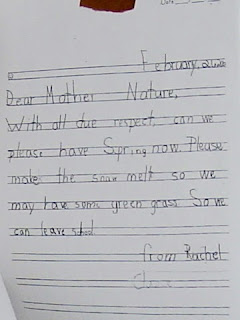 February,
Dear Mother Nature,
With all due respect, can we
please have Spring now. Please
make the snow melt so we
may have some green grass. So we
can leave school.
from Rachel